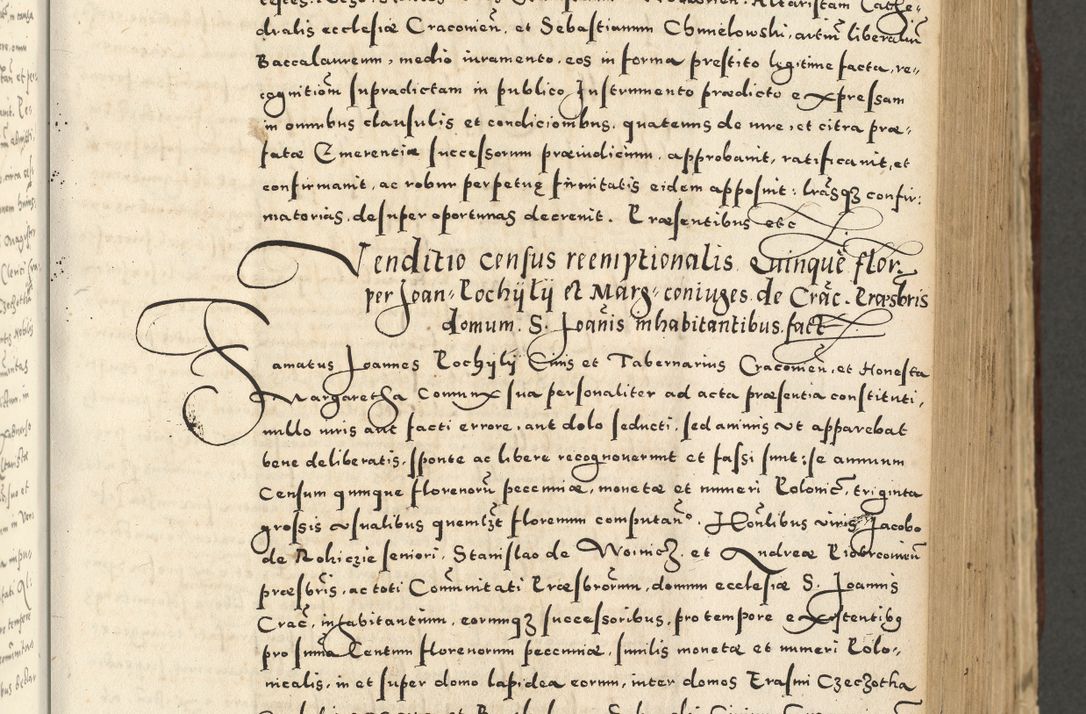 dralis ecclesiæ Cracomen̄, et Sebastianum Chmielowski, artiū liberaliū
Baccalaureum, medio iuramento, eos in forma prestito legitime facta, re-
cognitiōn supradictam in publico Instrumento prædicto expressam
in omnibus clausulis et condicionibus, quatenus de iure, et citra præ-
fatæ Emerentiæ successorum præiudicium, approbauit, ratificauit, et
confirmauit, ac robur perpetuę firmitatis eidem apposuit: lrasqȝ confir:
matorias, desuper oportunas decreuit. Præsentibus etc
Venditio census reemptionalis Quinque flor
per Joan. Pochylij et Marg. coniuges de Crac. Præsbris
domum S. Joanis inhabitantibus fact
Famatus Joannes Pochylij Ciuis et Tabernarius Cracomen̄, et Honesta
Margaretha Coniunx sua personaliter ad acta præsentia constituti,
nullo iuris aut facti errore, aut dolo seducti, sed animis ut apparebat
bene deliberatis, sponte ac libere recognouerunt et fassi sunt: se annuum
Censum quinque florenorū pecuniæ, monetæ et numeri Polonic, triginta
grossis usualibus quemlȝt florenum computan. Honlibus viris Jacobo
de Rokiczie seniori, Stanislao de Woinicȝ, et Andreæ
præsbris, ac toti Communitati Præsbrorum, domum ecclesiæ S. Joannis
Crac, inhabitantium, eorumqȝ successoribus, pro tempore existentibȝ
pro summa Centum florenorum pecuniæ, similis monetæ et numeri Polo-
nicalis, in et super domo lapidea eorum, inter domos Erasmi Czeczotha